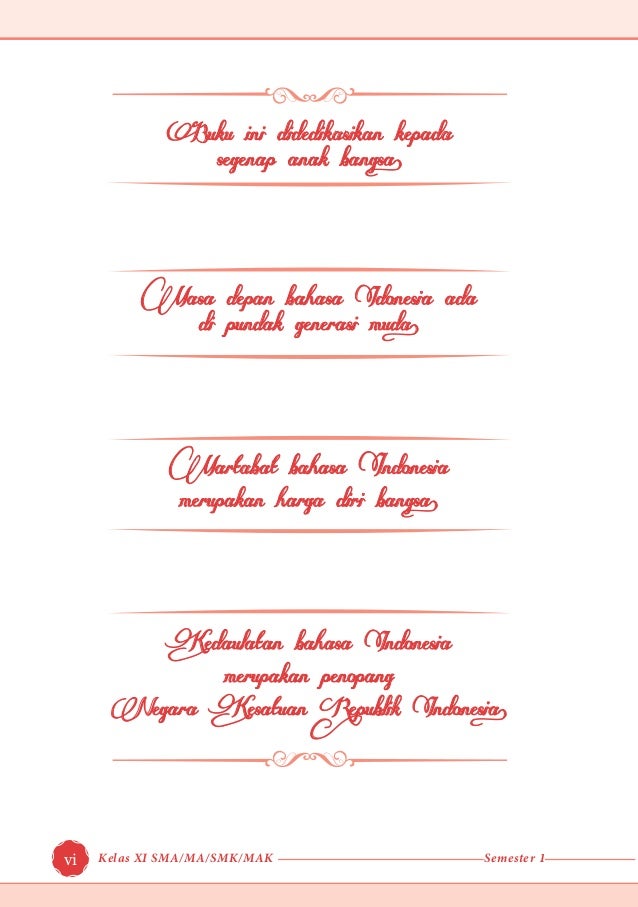 Buku ini didedikasikan kepada
segenap anak bangsa
Masa depan bahasa Idonesia ada
di pundak generasi muda
Martabat bahasa Indonesia
merupakan harga diri bangsa
Kedaulatan bahasa Indonesia
merupakan penopang
Negara Kesatuan Republik Indonesia
vi Kelas XI SMA/MA/SMK/MAK Semester 1